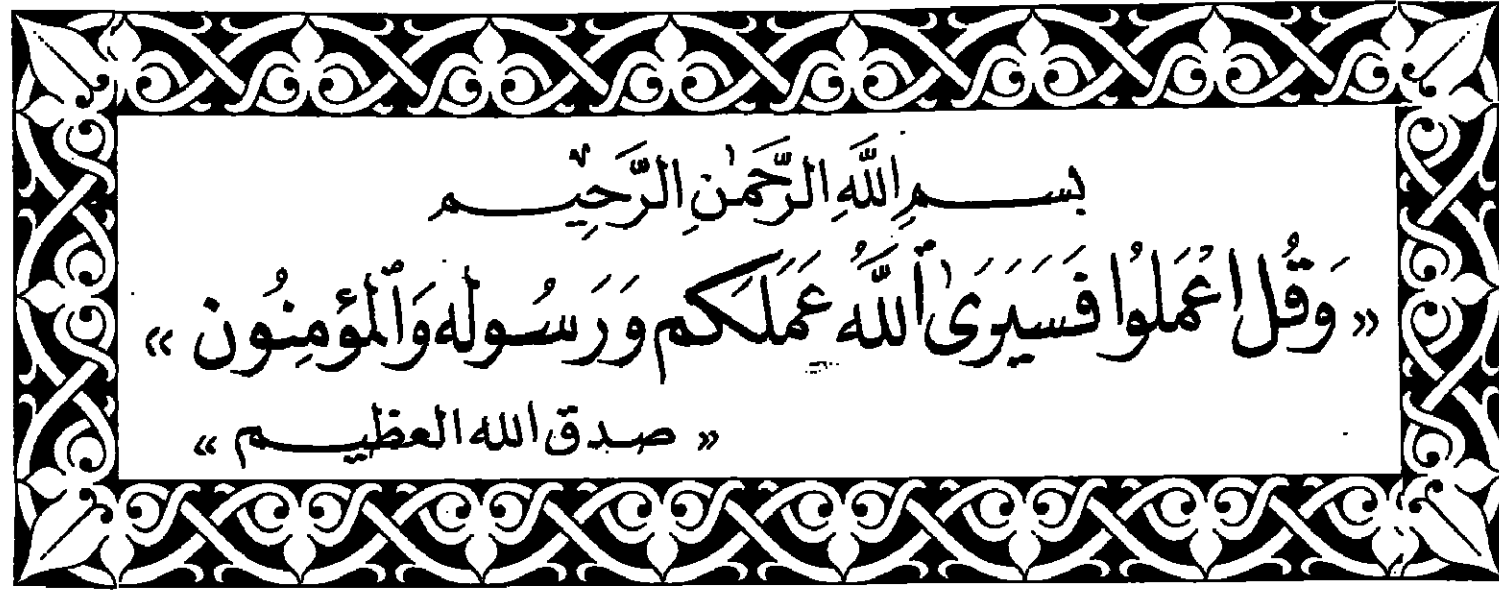 بسم اللَّهِ الرَّحْمَٰنِ الرَّحِيم
« وَقُل اعْمَلُوا فَسَيَرَىٰ ٱللَّهُ عَمَلَكُم وَرَسُوله وَٱلمُؤمِنُون »
« صدق الله العظيم »